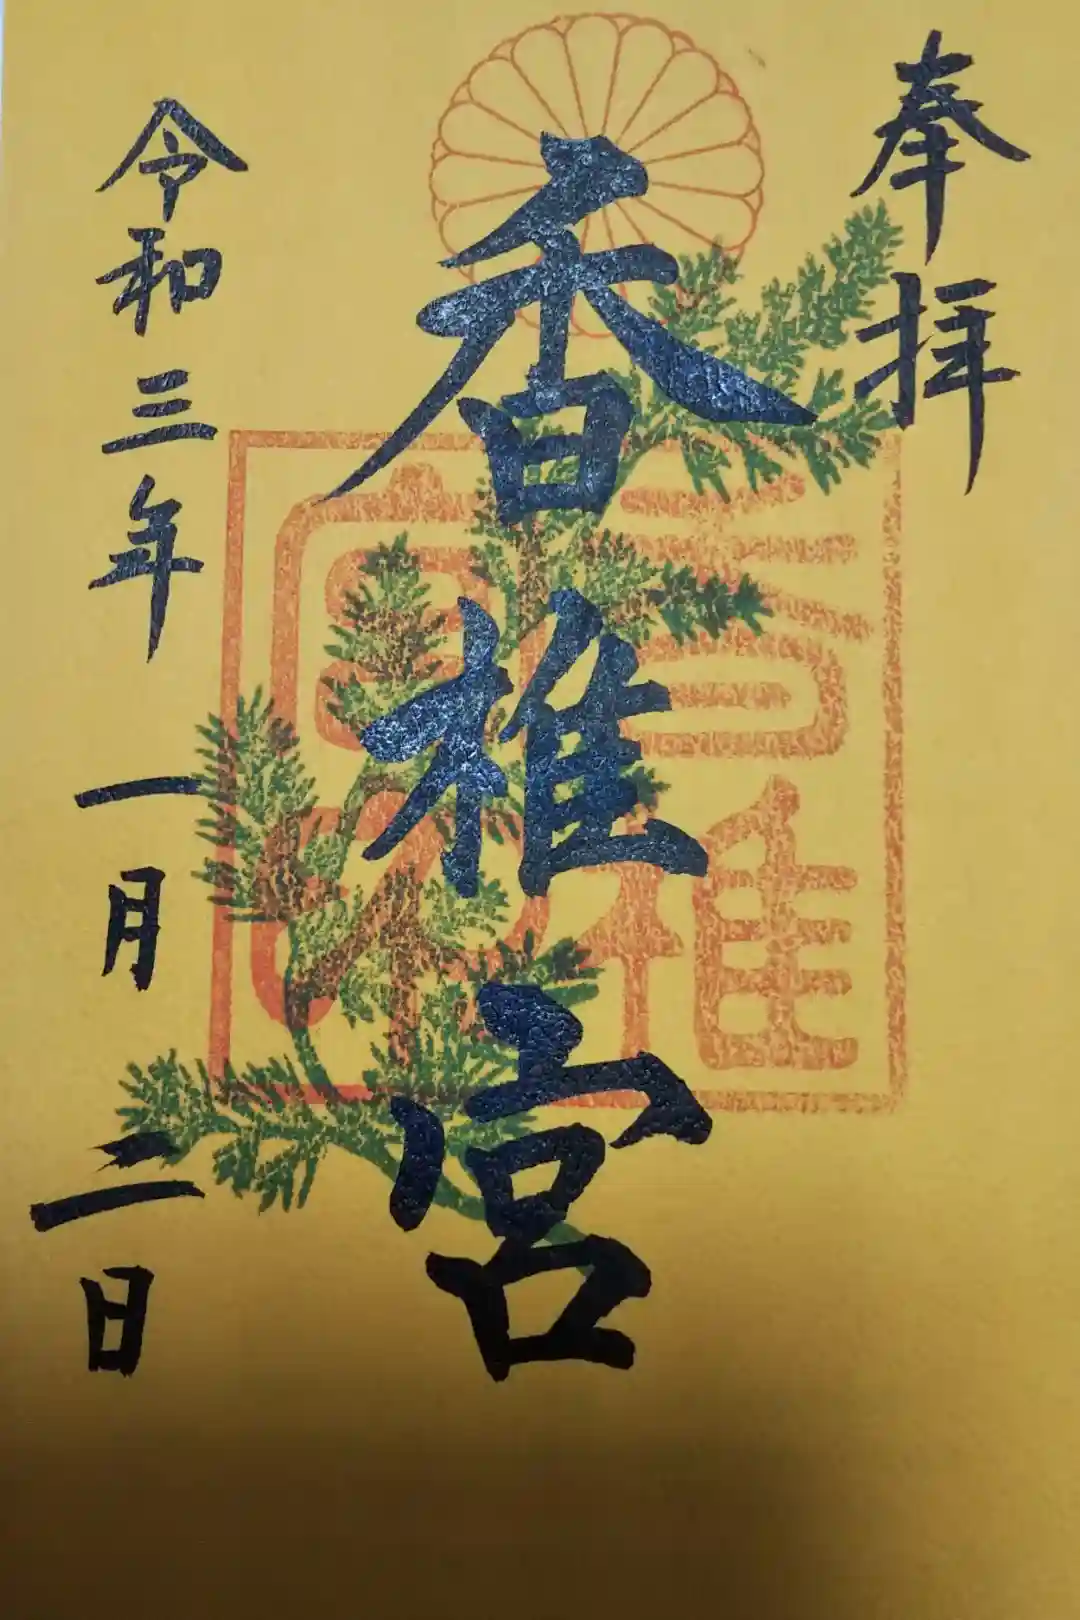 奉拝
香椎宮
令和三年一月二日
香椎宮印